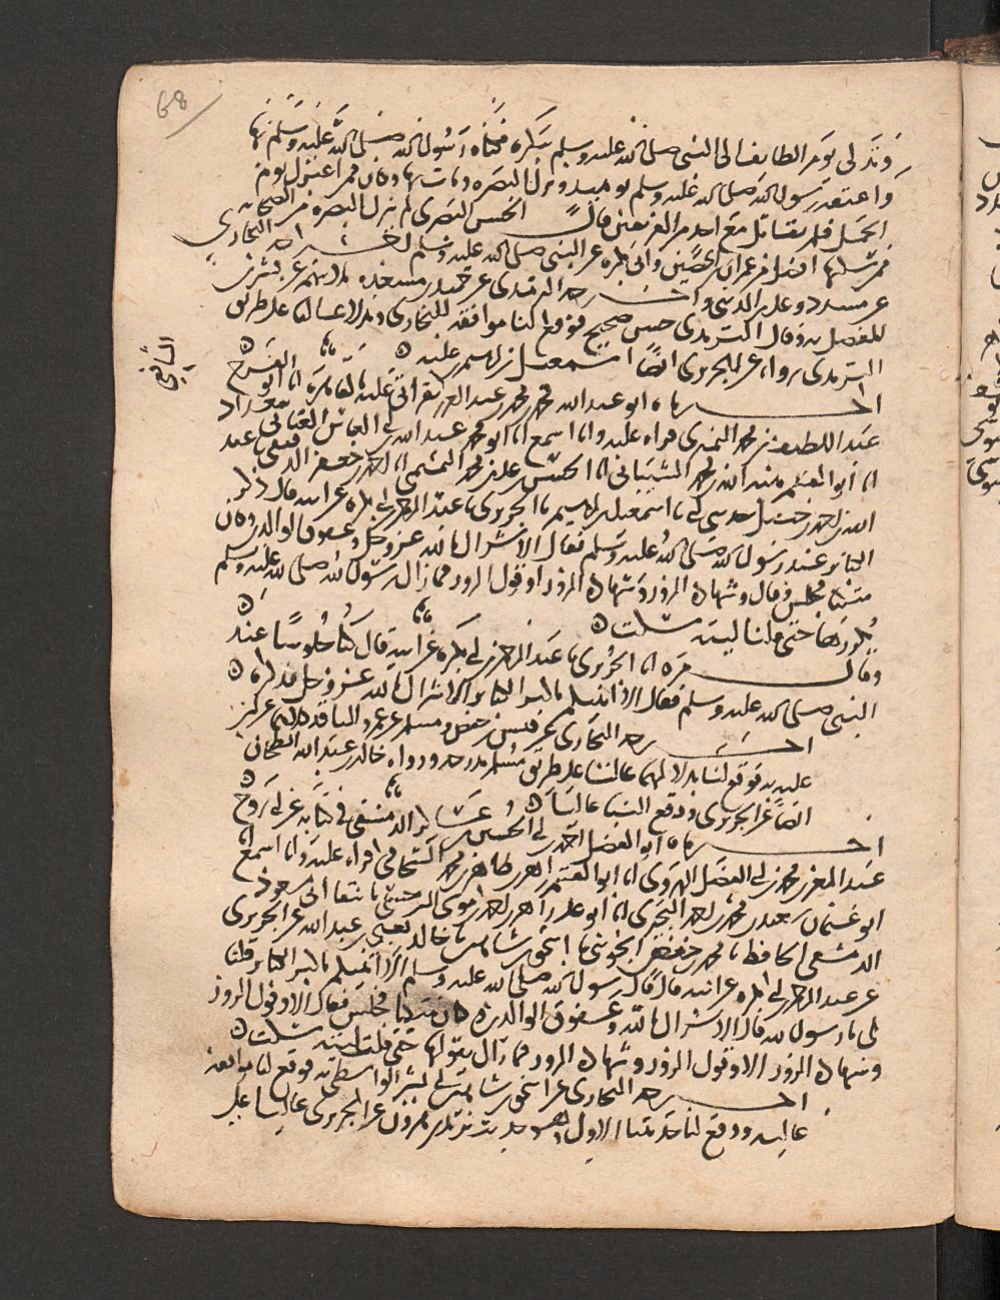 68
وتدلى يوم الطائف الى النبي صلى الله عليه وسلم ببكرة فكناه رسول الله صلى الله عليه وسلم بها
واعتقه رسول الله صلى الله عليه وسلم يوميذ ونزل البصره ومات بها وكان ممن اعتزل يوم
الجمل فلم يقاتل مع احد من الفريقين قال الحسن البصري لم ينزل البصره من الصحابه
ممن سكنها افضل من عمران بن حصين وابي بكره عن النبي صلى الله عليه وسلم اخرجه البخاري
عن مسدد وعلي بن المديني واخرجه الترمذي عن حميد بن مسعده ثلاثتهم عن بشر بن
المفضل به وقال الترمذي حسن صحيح فوقع لنا موافقه للبخاري وبدلا عاليا على طريق
الترمذي رواه عن الجريري ايضا اسمعيل بن ابراهيم بن عليه
التاسع
اخبرناه ابو عبد الله محمد بن محمد بن عبد العزيز بقراتي عليه بالقاهرة انا ابو الفرج
عبد اللطيف بن محمد النميري قراه عليه وانا اسمع انا ابو محمد عبد الله بن العتابي ببغداد
انا ابو القسم هبة الله بن محمد الشيباني انا الحسن بن علي بن محمد التميمي انا احمد بن جعفر القطيعي عبد
الله بن احمد بن حنبل حدثني ابي نا اسمعيل بن ابراهيم نا الجريري نا عبد الرحمن بن ابي بكره عن ابيه قال ذكر
الكبائر عند رسول الله صلى الله عليه وسلم فقال الاشراك بالله عز وجل وعقوق الوالدين وكان
متكيا فجلس وقال وشهادة الزور وشهادة الزور او قول الزور فما زال رسول الله صلى الله عليه وسلم
يكررها حتى قلنا ليته سكت
وقال مره انا الجريري نا عبد الرحمن بن ابي بكره عن ابيه قال كنا جلوسا عند
النبي صلى الله عليه وسلم فقال الا انبئكم باكبر الكبائر الاشراك بالله عز وجل فذكره
اخرجه البخاري عن قيس بن حفص ومسلم عن عمرو الناقد كلاهما عن
عليه به فوقع لنا بدلا لهما عاليا على طريق مسلم بدرجه ورواه خالد بن عبد الله الطحان
ايضا عن الجريري ووقع الينا عاليا
اخبرناه ابو الفضل احمد بن ابي الحسين بن عساكر الدمشقي في كتابه عن ابي روح
عبد المعز بن محمد بن ابي الفضل الهروي انا ابو القسم زاهر بن طاهر بن محمد الشحامي قراه عليه وانا اسمع انا
ابو عثمان سعيد بن محمد بن احمد البحيري انا ابو علي زاهر بن احمد السرخسي بانتقا ابي مسعود
الدمشقي الحافظ نا محمد بن حفص الجويني نا اسحق بن شاهين نا خالد يعني بن عبد الله عن الجريري
عن عبد الرحمن بن ابي بكره عن ابيه قال قال رسول الله صلى الله عليه وسلم الا انبئكم باكبر الكبائر قلنا
بلى يا رسول الله قال الاشراك بالله وعقوق الوالدين وكان متكيا فجلس فقال الا وقول الزور
وشهادة الزور الا وقول الزور وشهادة الزور فما زال يقولها حتى قلت ليته سكت
اخرجه البخاري عن اسحق بن شاهين ابي بشر الواسطي به فوقع لنا موافقه
عاليه ووقع لنا حديثنا الاول من حديث يزيد بن هرون عن الجريري عاليا على